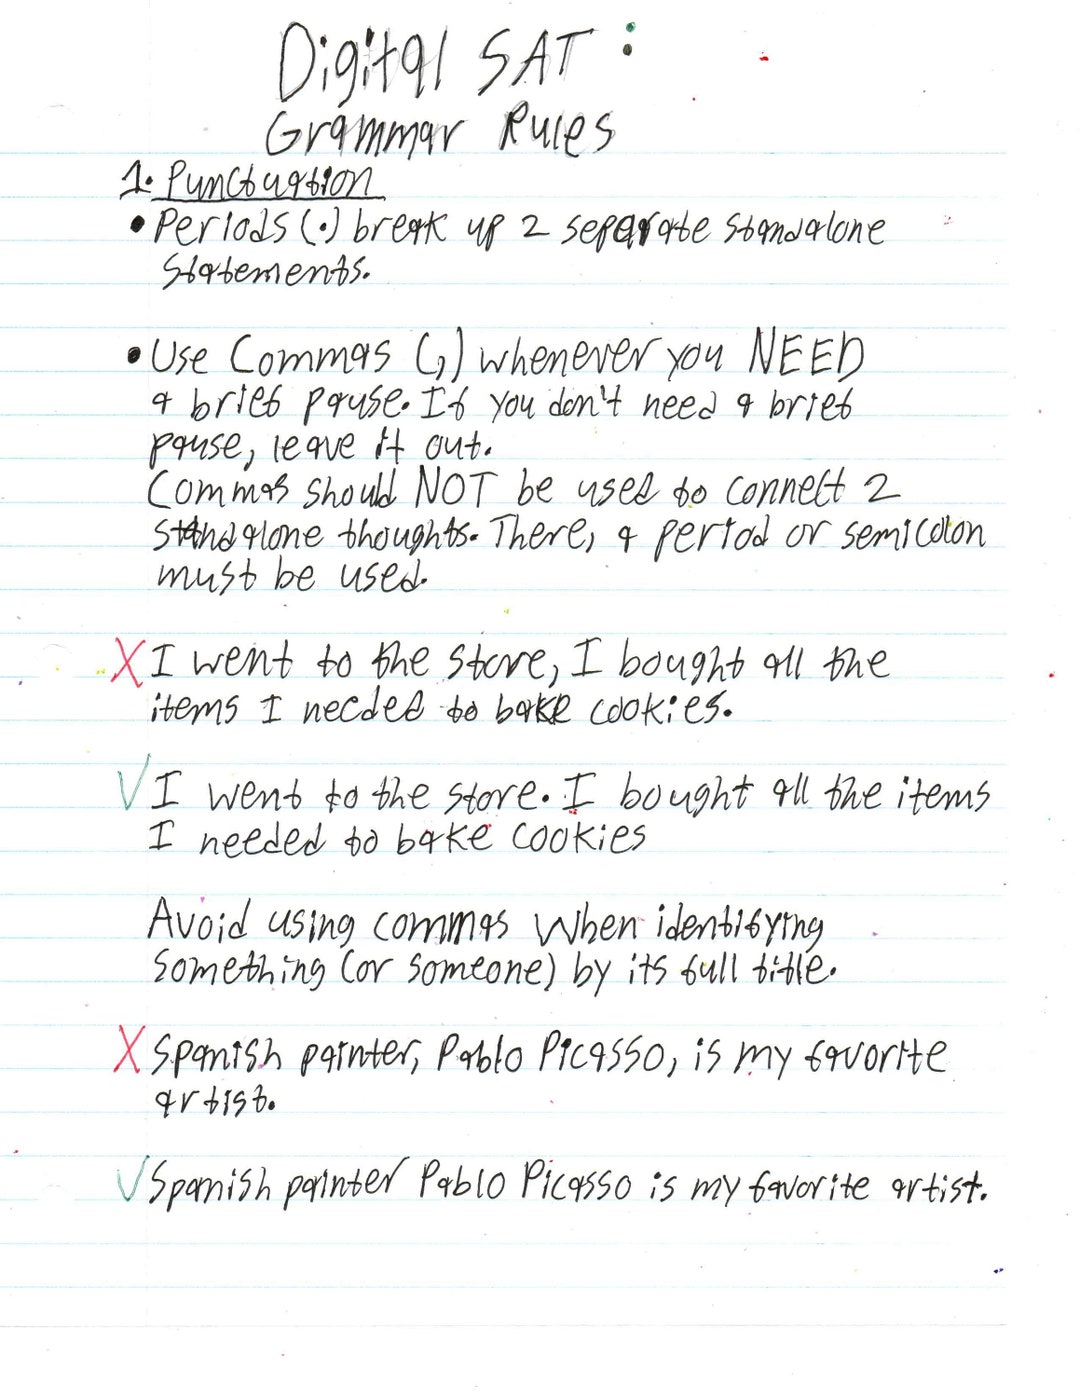 Digital SAT :
Grammar Rules
1. Punctuation
• Periods (.) break up 2 separate standalone
statements.
• Use Commas (,) whenever you NEED
a brief pause. If you don't need a brief
pause, leave it out.
Commas should NOT be used to connect 2
standalone thoughts. There, a period or semicolon
must be used.
X I went to the store, I bought all the
items I needed to bake cookies.
✓ I went to the store. I bought all the items
I needed to bake cookies
Avoid using commas when identifying
something (or someone) by its full title.
X Spanish painter, Pablo Picasso, is my favorite
artist.
✓ Spanish painter Pablo Picasso is my favorite artist.